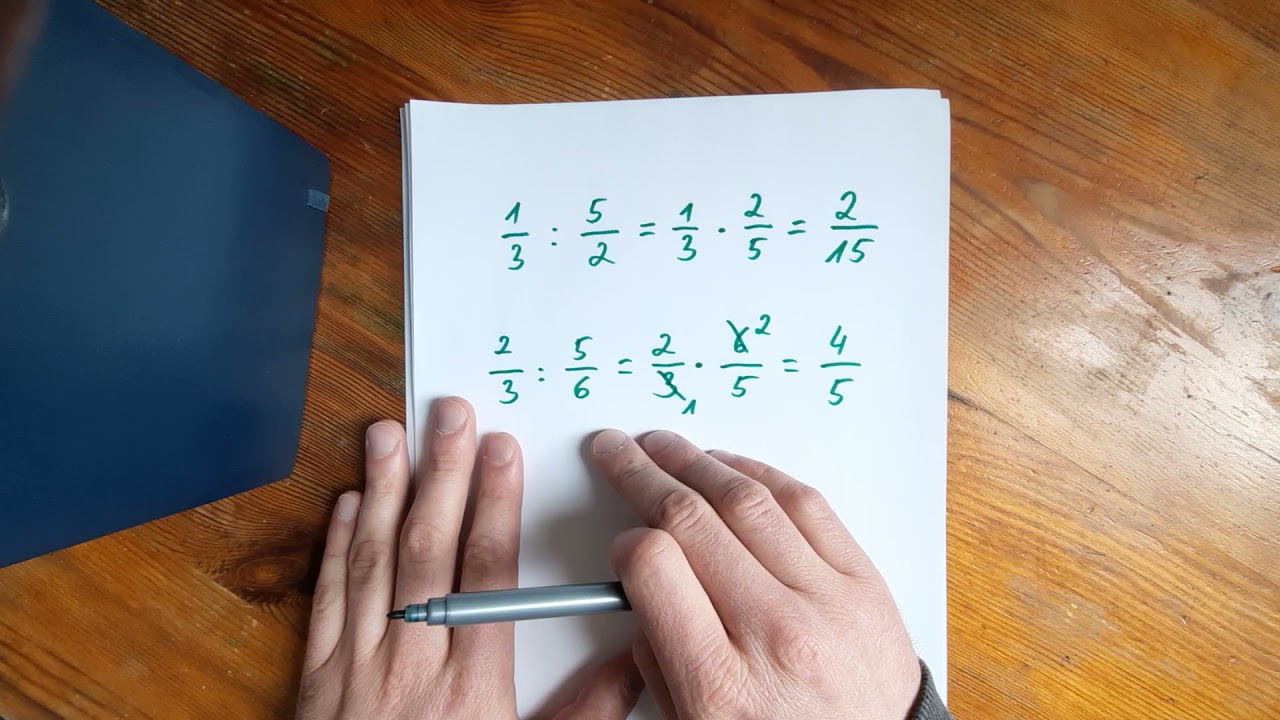 1/3 : 5/2 = 1/3 · 2/5 = 2/15
2/3 : 5/6 = 2/3 1 · 6 2/5 = 4/5